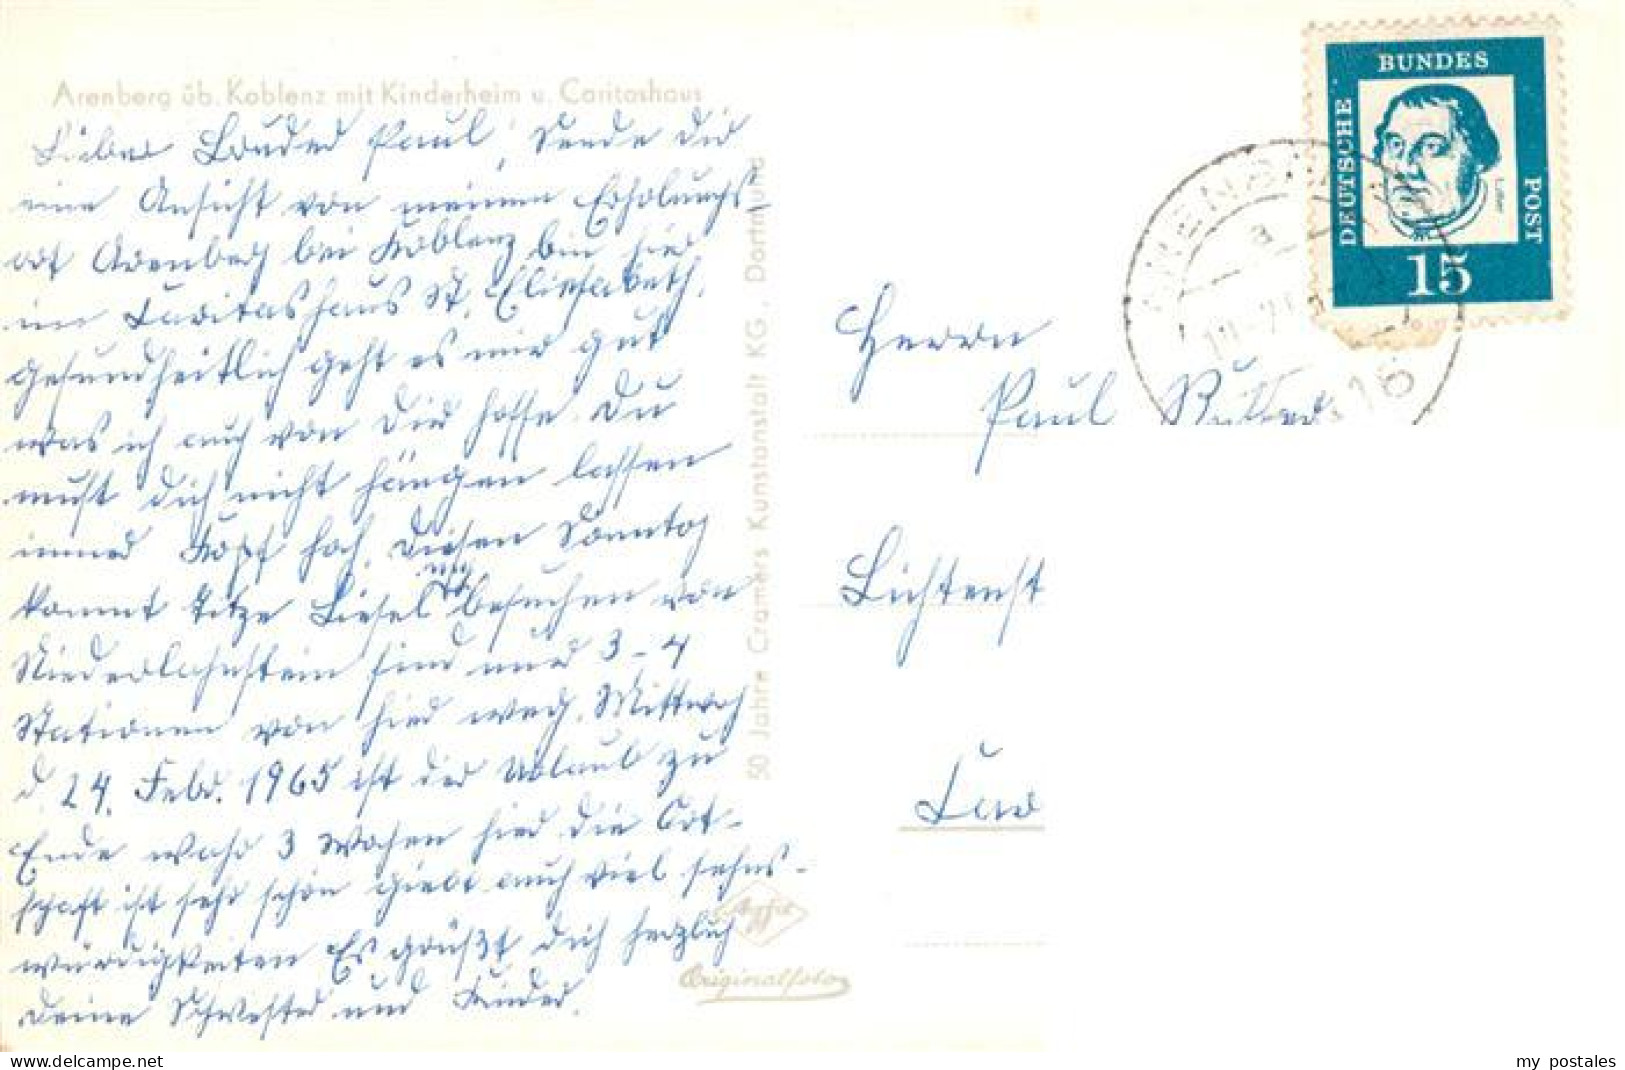 Arenberg üb. Koblenz mit Kinderheim u. Caritashaus
Lieber Bruder Paul, Sende dir
eine Ansicht von meinem Erholungs-
ort Arenberg bei Koblenz bin hier
im Caritashaus St. Eliesabeth,
gesundheitlich geht es mir gut
was ich auch von Dir hoffe. Du
must dich nicht hängen lassen
immer Kopf hoch. Diesen Sonntag
kommt Liesel mich besuchen von
Niederlahnstein sind nur 3-4
Stationen von hier weg. Mittwoch
d. 24. Febr. 1965 ist der Urlaub zu
Ende war 3 Wochen hier die Ort-
schaft ist sehr schön giebt auch viel sehns-
würdigkeiten Es grüßt dich herzlich
deine Schwester und Kinder.
50 Jahre Cramers Kunstanstalt KG, Dortmund
Originalfoto
DEUTSCHE
BUNDES
POST
Luther
15
ARENBERG
a
Herrn
Paul
Lichtenst
my postales
www.delcampe.net